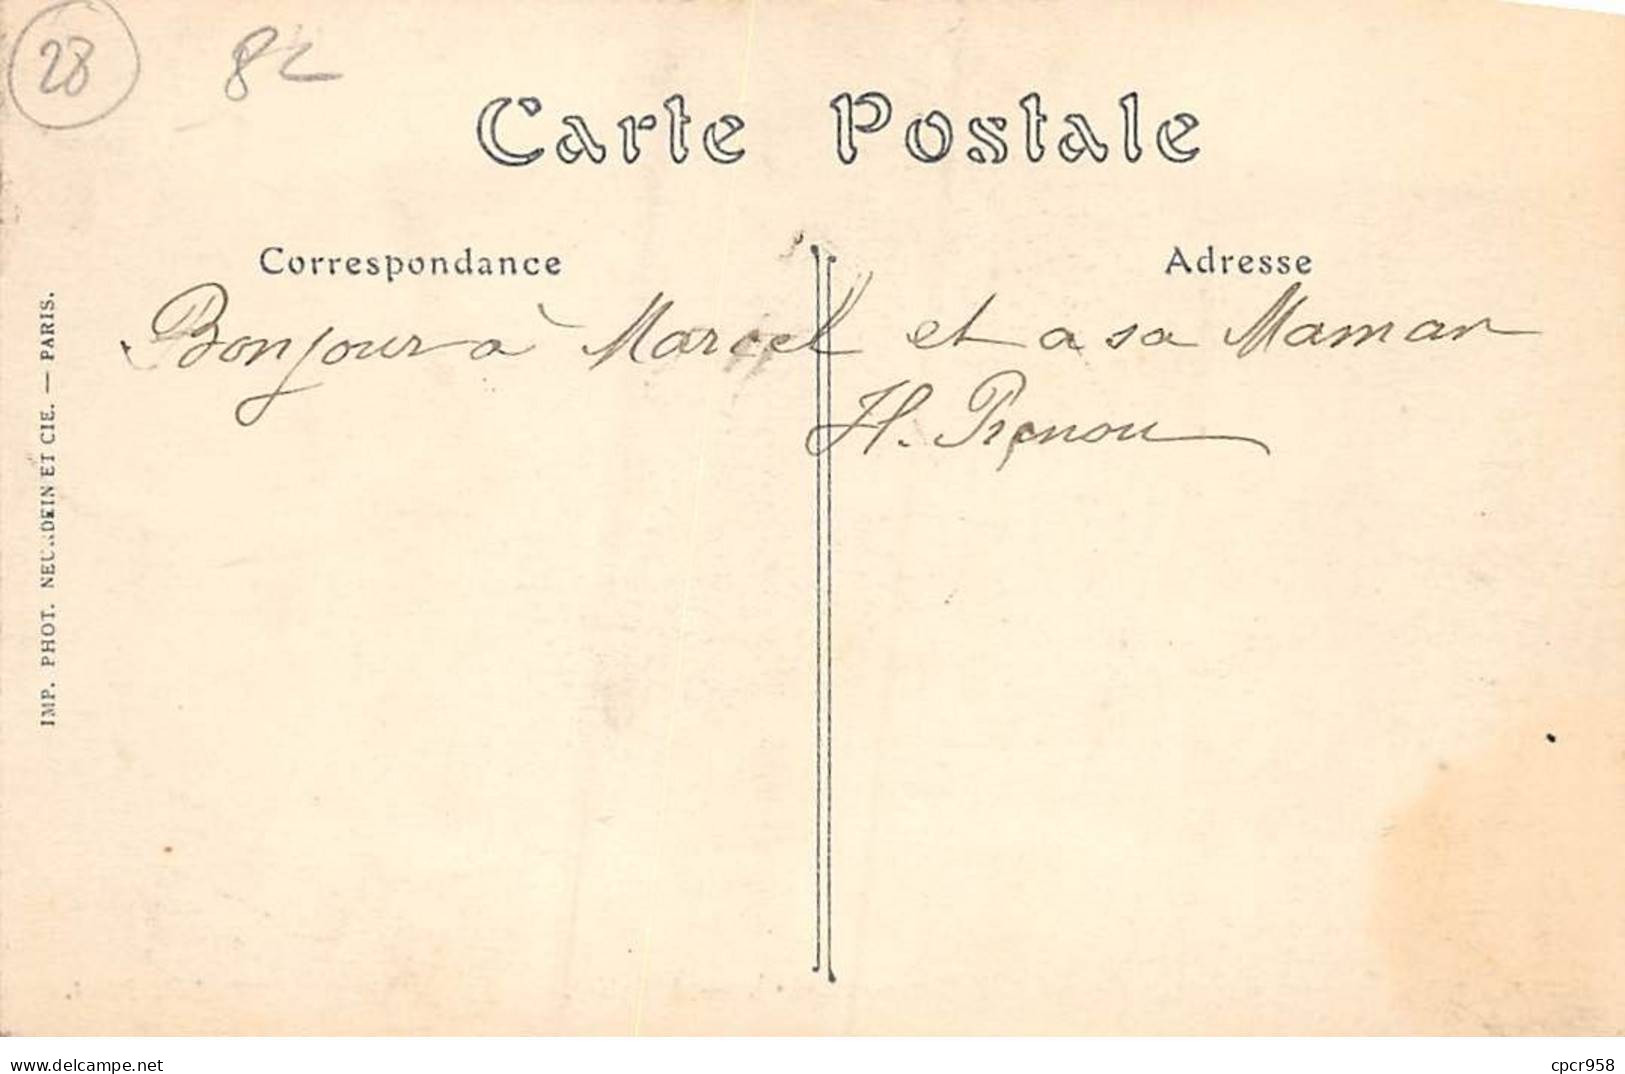 28 82
Carte Postale
Correspondance
Adresse
Bonjour à Marcel et a sa Maman
H.
IMP. PHOT. NEURDEIN ET CIE. — PARIS.
https://www.delcampe.net
cpcr958